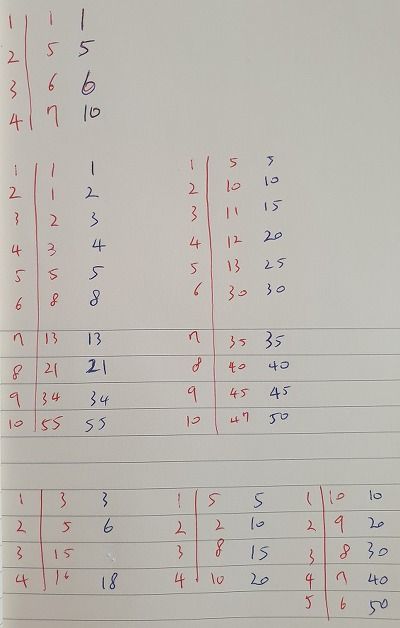 1 1 1
2 5 5
3 6 6
4 7 10
1 1 1
2 1 2
3 2 3
4 3 4
5 5 5
6 8 8
7 13 13
8 21 21
9 34 34
10 55 55
1 5 5
2 10 10
3 11 15
4 12 20
5 13 25
6 30 30
7 35 35
8 40 40
9 45 45
10 47 50
1 3 3
2 5 6
3 15
4 16 18
1 5 5
2 2 10
3 8 15
4 10 20
1 10 10
2 9 20
3 8 30
4 7 40
5 6 50